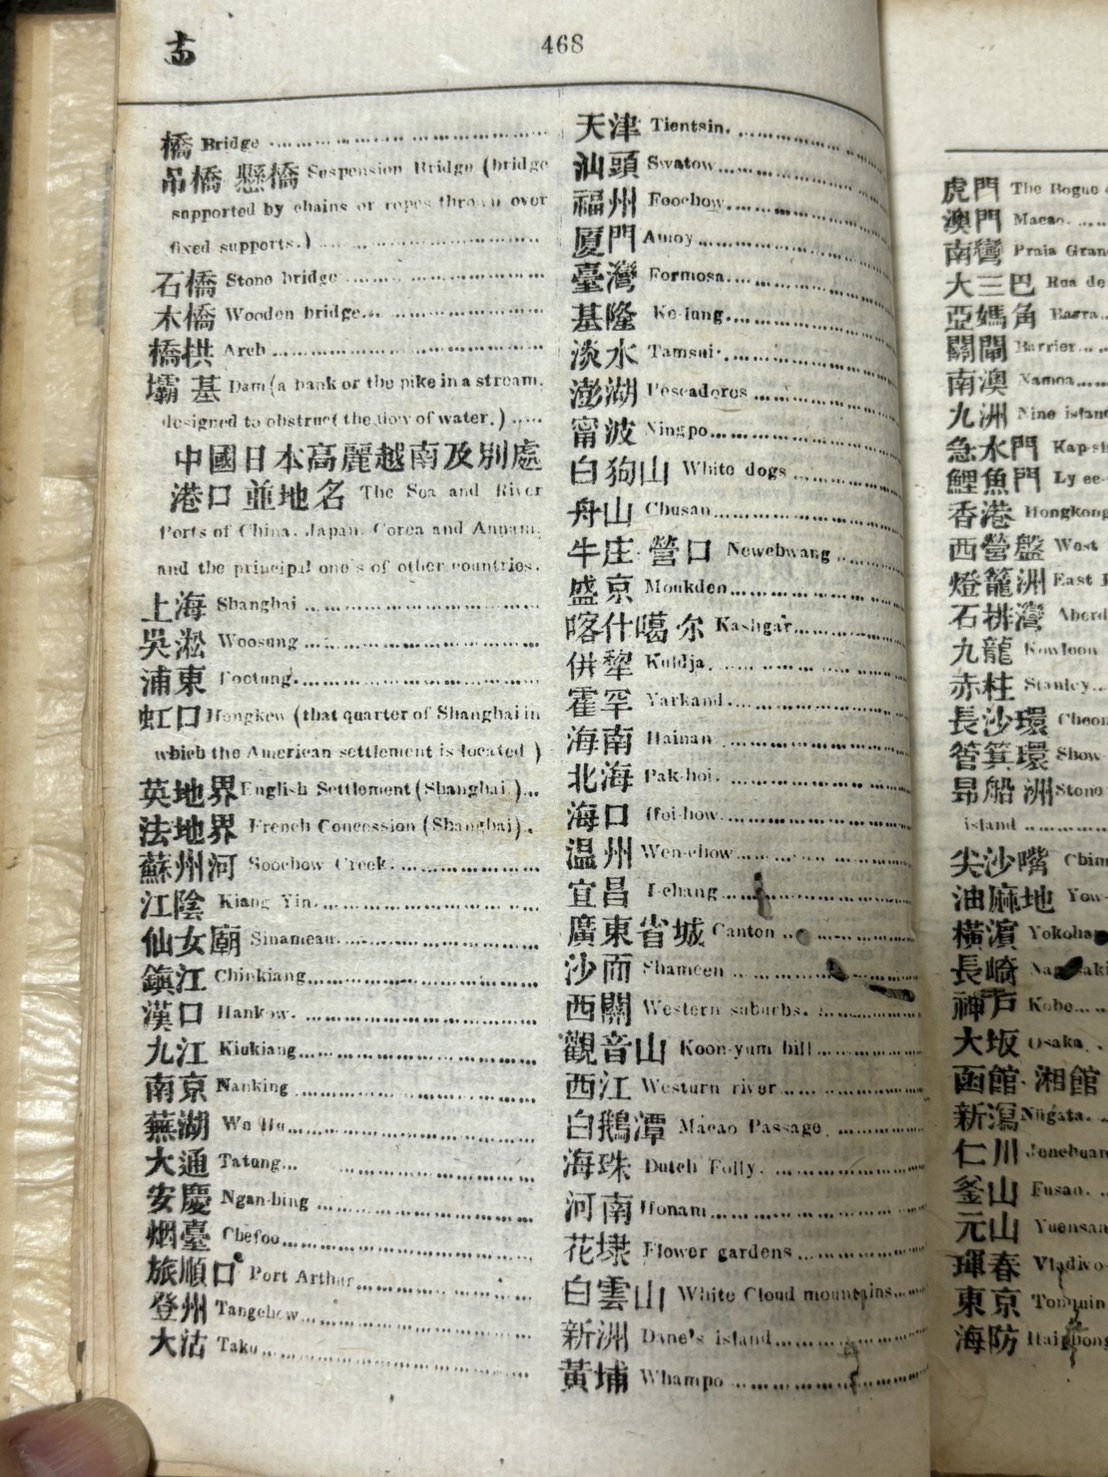 468
橋 Bridge
吊橋 懸橋 Suspension Bridge (bridge
supported by chains or ropes thrown over
fixed supports.)
石橋 Stone bridge
木橋 Wooden bridge
橋拱 Arch
壩基 Dam (a bank or the pike in a stream.
designed to obstruct the flow of water.)
中國日本高麗越南及別處
港口並地名 The Sea and River
Ports of China. Japan. Corea and Annam.
and the principal one's of other countries.
上海 Shanghai
吳淞 Woosung
浦東 Pootung
虹口 Hongkew (that quarter of Shanghai in
which the American settlement is located )
英地界 English Settlement (Shanghai )
法地界 French Concession (Shanghai)
蘇州河 Soochow Creek
江陰 Kiang Yin
仙女廟 Sinameau
鎮江 Chinkiang
漢口 Hankow
九江 Kiukiang
南京 Nanking
蕪湖 Wu Hu
大通 Tatung
安慶 Ngan-hing
烟臺 Chefoo
旅順口 Port Arthur
登州 Tangchow
大沽 Taku
天津 Tientsin
汕頭 Swatow
福州 Foochow
厦門 Amoy
臺灣 Formosa
基隆 Ke-lung
淡水 Tamsui
澎湖 Pescadores
甯波 Ningpo
白狗山 White dogs
舟山 Chusan
牛庄·營口 Newchwang
盛京 Moukden
喀什噶尔 Kashgar
Kuldja
霍罕 Yarkand
海南 Hainan
北海 Pak-hoi
海口 Hoi-how
温州 Wen-chow
宜昌 I-chang
廣東省城 Canton
沙面 Shameen
西關 Western suburbs
觀音山 Koon-yum hill
西江 Western river
白鵝潭 Macao Passage
海珠 Dutch Folly
河南 Honam
花埭 Flower gardens
白雲山 White Cloud mountains
新洲 Dane's island
黃埔 Whampo
虎門 The Bogue
澳門 Macao
南灣 Praia Gran
大三巴 Rua de
亞媽角 Barra
關閘 Barrier
南澳 Namoa
九洲 Nine island
急水門 Kap-sh
鯉魚門 Ly ee-
香港 Hongkong
西營盤 West
燈籠洲 East
石排灣 Aberd
九龍 Kowloon
赤柱 Stanley
長沙環 Cheon
筲箕環 Show
昂船洲 Stone
island
尖沙嘴 Chim
油麻地 Yow-
橫濱 Yokoha
長崎 Nagasaki
神戶 Kobe
大坂 Osaka
函館·湘館
新瀉 Niigata
仁川 Jenchuan
釜山 Fusan
元山 Yuensan
琿春 Vladivo
東京 Tonquin
海防 Haiphong